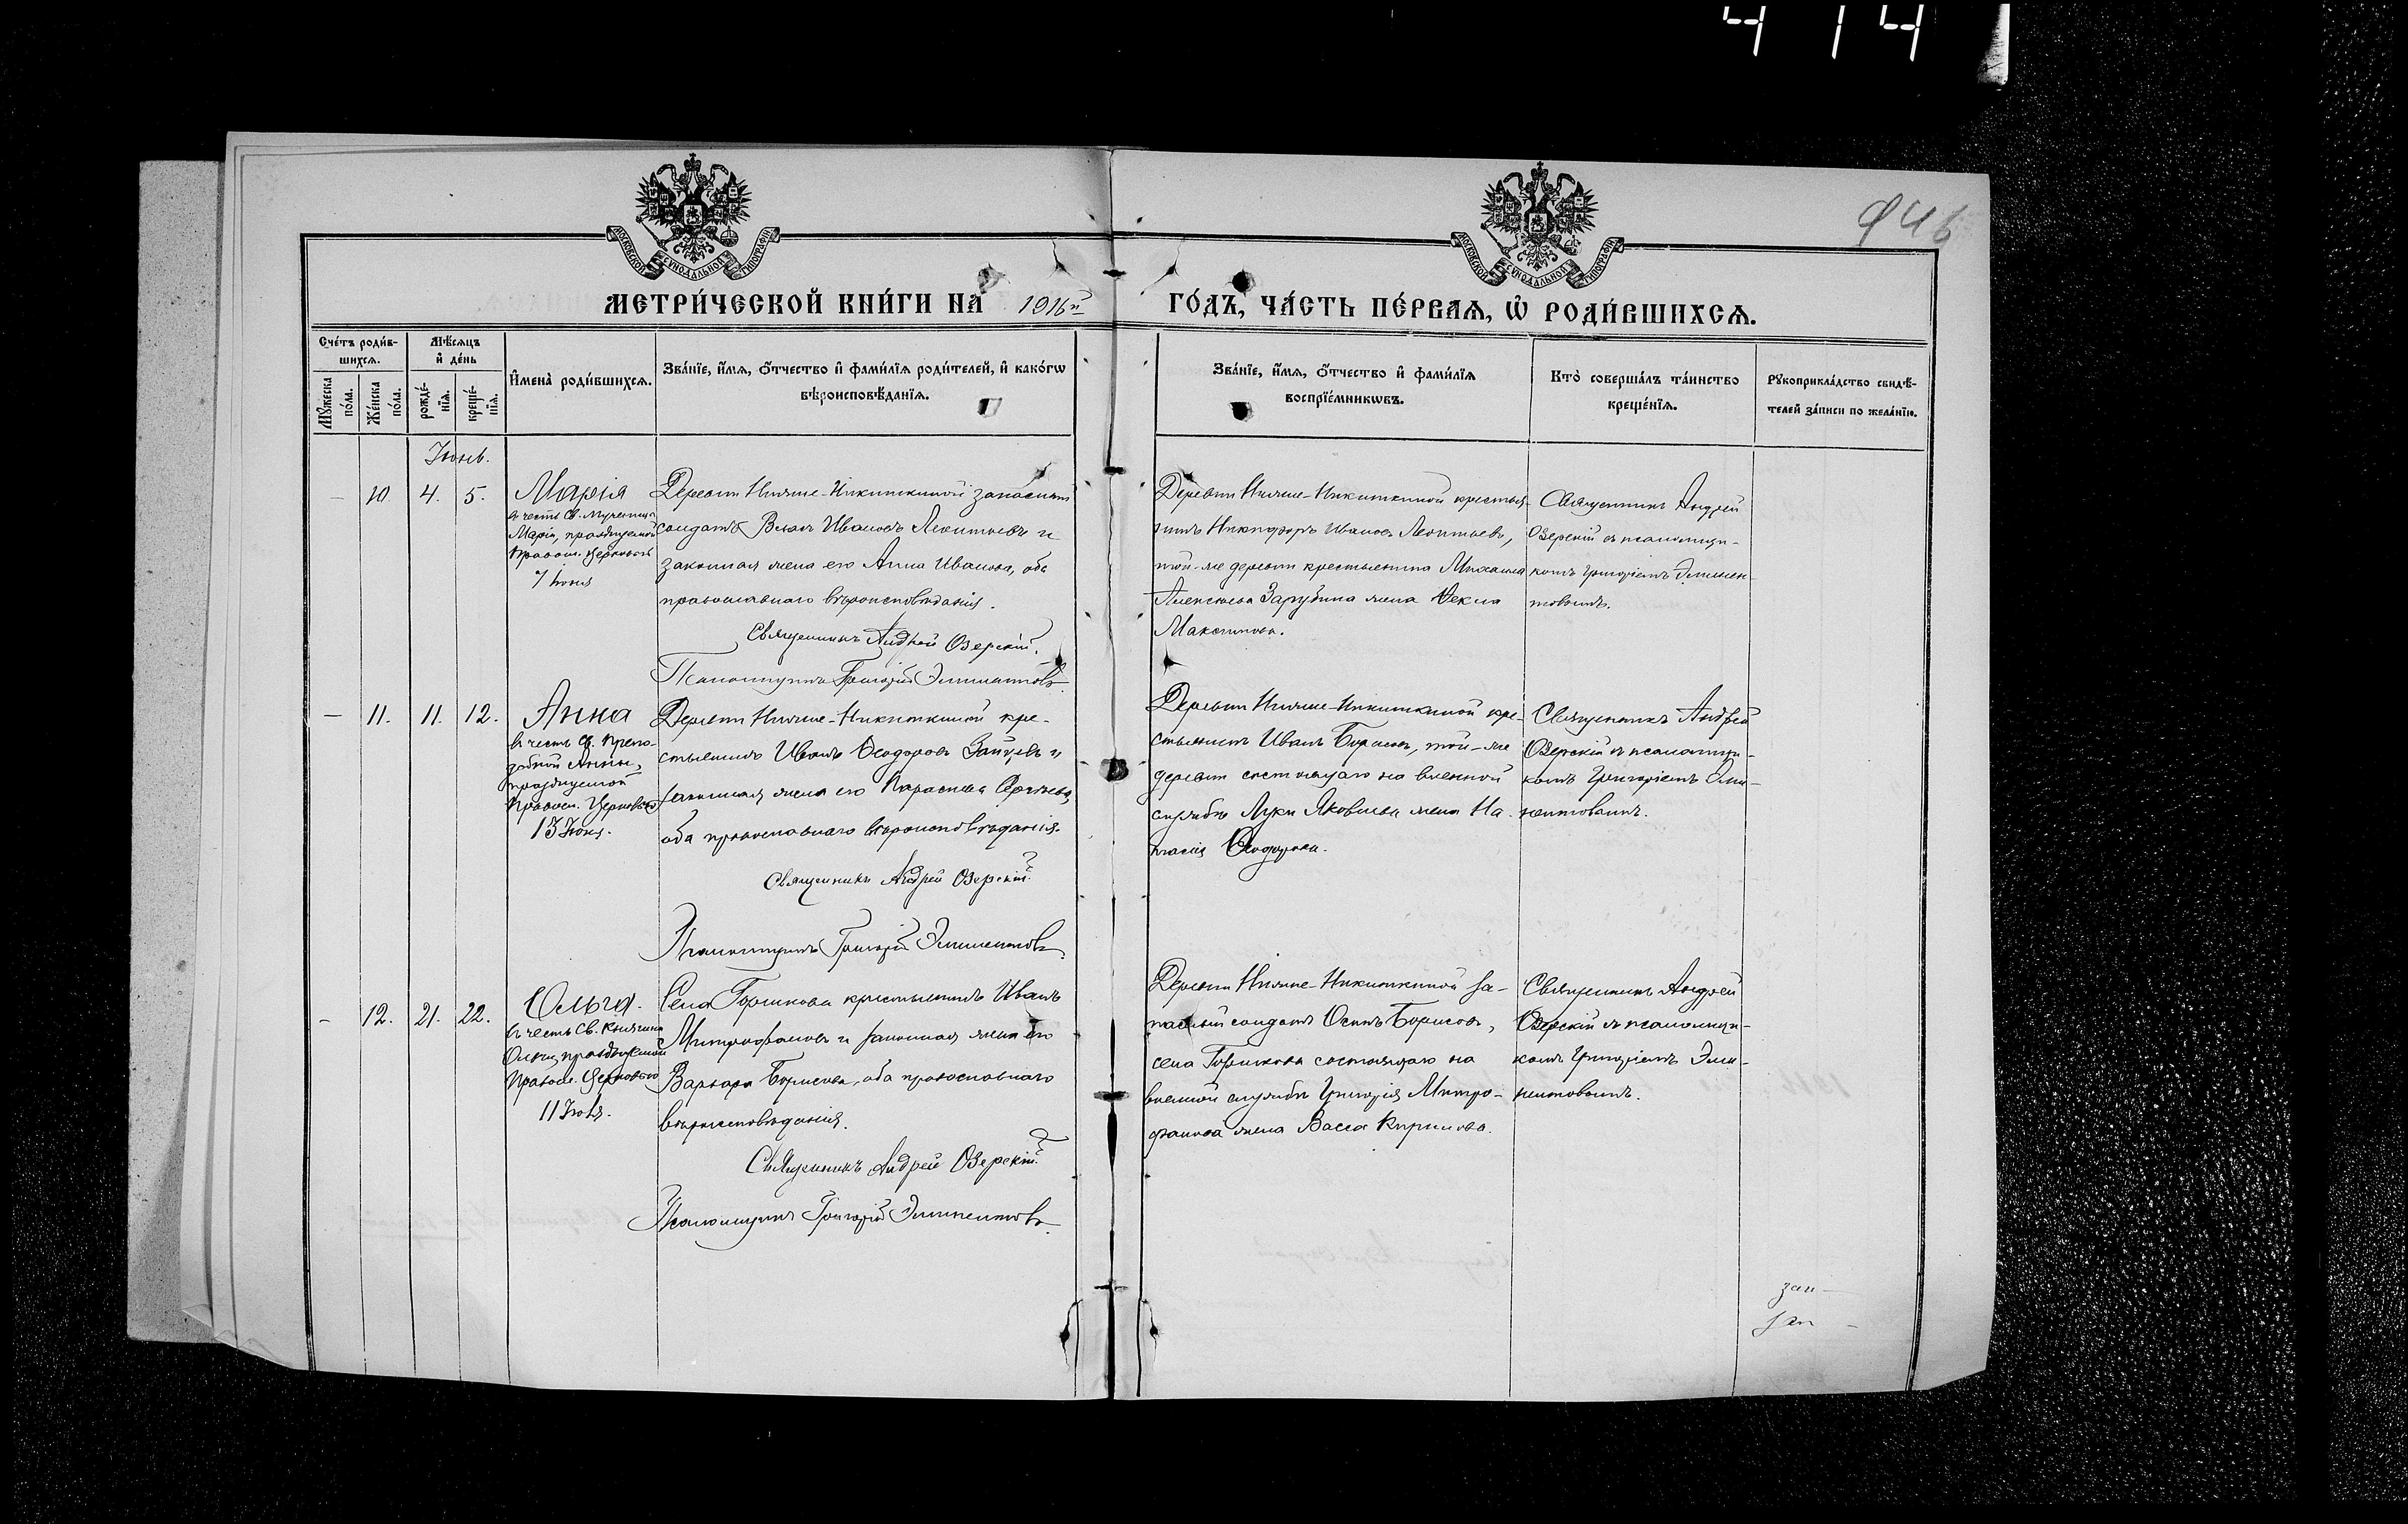 4 14
946
МОСКОВСКОЙ СѴНОДАЛЬНОЙ ТИПОГРАФІИ
МОСКОВСКОЙ СѴНОДАЛЬНОЙ ТИПОГРАФІИ
МЕТРИ́ЧЕСКОЙ КНИ́ГИ НА 1916й ГО́ДЪ, ЧА́СТЬ ПЕ́РВАѦ, Ѡ҆ РОДИ́ВШИХСѦ.
Сче́тъ роди́в-
шихсѧ.
Мѣ́сѧцъ
и҆ де́нь
Мꙋ́жеска
по́ла.
Же́нска
по́ла.
рожде́-
нїѧ.
креще́-
нїѧ.
И҆мена̀ роди́вшихсѧ.
Зва́нїе, и҆́мѧ, ѻ҆́тчество и҆ фами́лїѧ роди́телей, и҆ како́гѡ
вѣроисповѣ́данїѧ.
Зва́нїе, и҆́мѧ, ѻ҆́тчество и҆ фами́лїѧ
воспрїе́мникѡвъ.
Кто̀ соверша́лъ та́инство
креще́нїѧ.
Рꙋкоприкла́дство свидѣ́-
телей за́писи по жела́нїю.
Іюнь.
— 10. 4. 5.
Марія
въ честь Св. мученицы
Маріи, празднуемой
Правосл. Церковью
7 Іюня
Деревни Нижне-Никиткиной запасный
солдатъ Власъ Ивановъ Леонтьевъ и
законная жена его Анна Иванова, оба
православнаго вѣроисповѣданія.
Священникъ Андрей Озерскій.
Псаломщикъ Григорій Эминентовъ.
Деревни Нижне-Никиткиной крестья-
нинъ Никифоръ Ивановъ Леонтьевъ,
той-же деревни крестьянина Михаила
Алексѣева Зарубина жена Ѳекла
Максимова.
Священникъ Андрей
Озерскій съ псаломщи-
комъ Григоріемъ Эминен-
товымъ.
— 11. 11. 12.
Анна
въ честь Св. Препо-
добной Анны,
празднуемой
Правосл. Церковью
13 Іюня.
Деревни Нижне-Никиткиной кре-
стьянинъ Иванъ Ѳеодоровъ Зайцевъ и
законная жена его Параскева Сергѣева,
оба православнаго вѣроисповѣданія.
Священникъ Андрей Озерскій.
Псаломщикъ Григорій Эминентовъ.
Деревни Нижне-Никиткиной кре-
стьянинъ Иванъ Борисовъ, той-же
деревни состоящаго на военной
службѣ Луки Яковлева жена На-
талія Ѳеодорова.
Священникъ Андрей
Озерскій съ псаломщи-
комъ Григоріемъ Эми-
нентовымъ.
- 12. 21. 22.
Ольга.
въ честь Св. Княгини
Ольги, празднуемой
Правосл. Церковью
11 Іюля.
Села Горшкова крестьянинъ Иванъ
Митрофановъ и законная жена его
Варвара Борисова, оба православнаго
вѣроисповѣданія.
Священникъ Андрей Озерскій.
Псаломщикъ Григорій Эминентовъ.
Деревни Нижне-Никиткиной за-
пасный солдатъ Осипъ Борисовъ,
села Горшкова состоящаго на
военной службѣ Григорія Митро-
фанова жена Васса Кирилова.
Священникъ Андрей
Озерскій съ псаломщи-
комъ Григоріемъ Эми-
нентовымъ.
зап